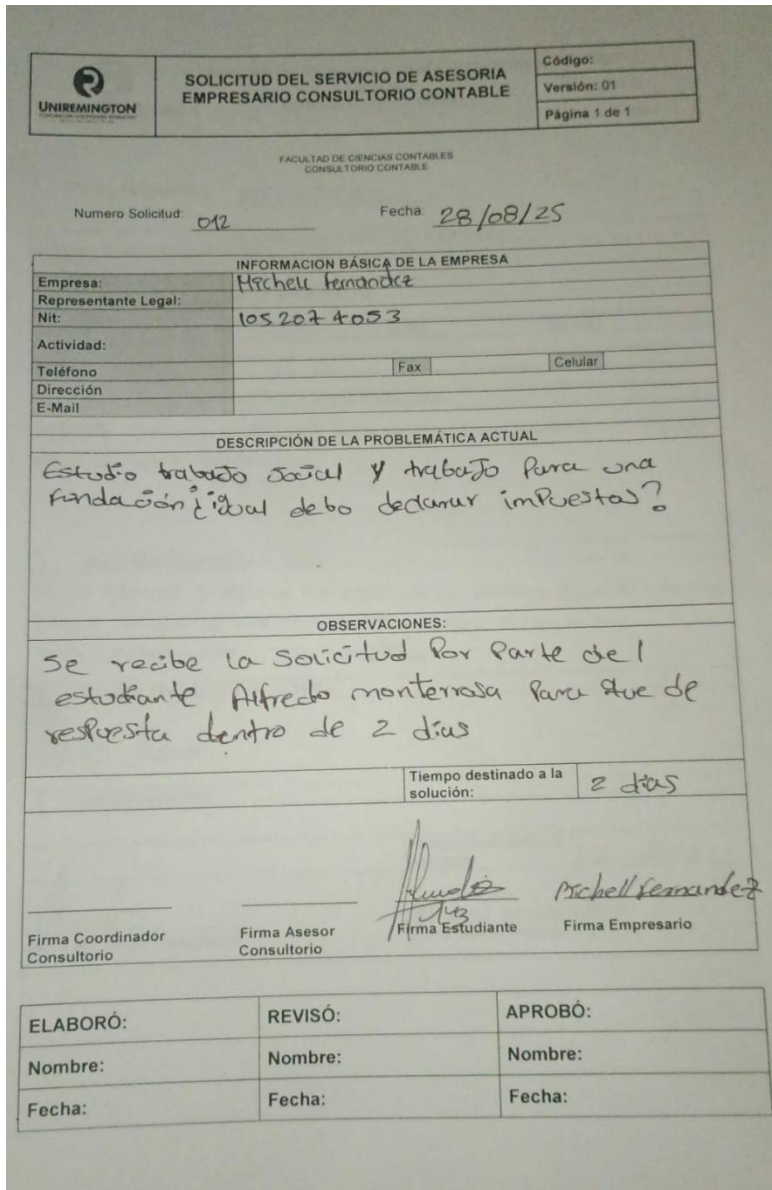 UNIREMINGTON
SOLICITUD DEL SERVICIO DE ASESORIA
EMPRESARIO CONSULTORIO CONTABLE
Código:
Versión: 01
Página 1 de 1
FACULTAD DE CIENCIAS CONTABLES
CONSULTORIO CONTABLE
Numero Solicitud: 012 Fecha: 28/08/25
INFORMACION BÁSICA DE LA EMPRESA
Empresa: Michell Fernandez
Representante Legal:
Nit: 1052074053
Actividad:
Teléfono Fax Celular
Dirección
E-Mail
DESCRIPCIÓN DE LA PROBLEMÁTICA ACTUAL
Estudio trabajo social y trabajo para una
Fundación ¿igual debo declarar impuestos?
OBSERVACIONES:
Se recibe la solicitud por parte del
estudiante Alfredo monterrosa para que de
respuesta dentro de 2 días
Tiempo destinado a la
solución: 2 días
Michell Fernandez
Firma Coordinador
Consultorio
Firma Asesor
Consultorio
Firma Estudiante
Firma Empresario
ELABORÓ: REVISÓ: APROBÓ:
Nombre: Nombre: Nombre:
Fecha: Fecha: Fecha: